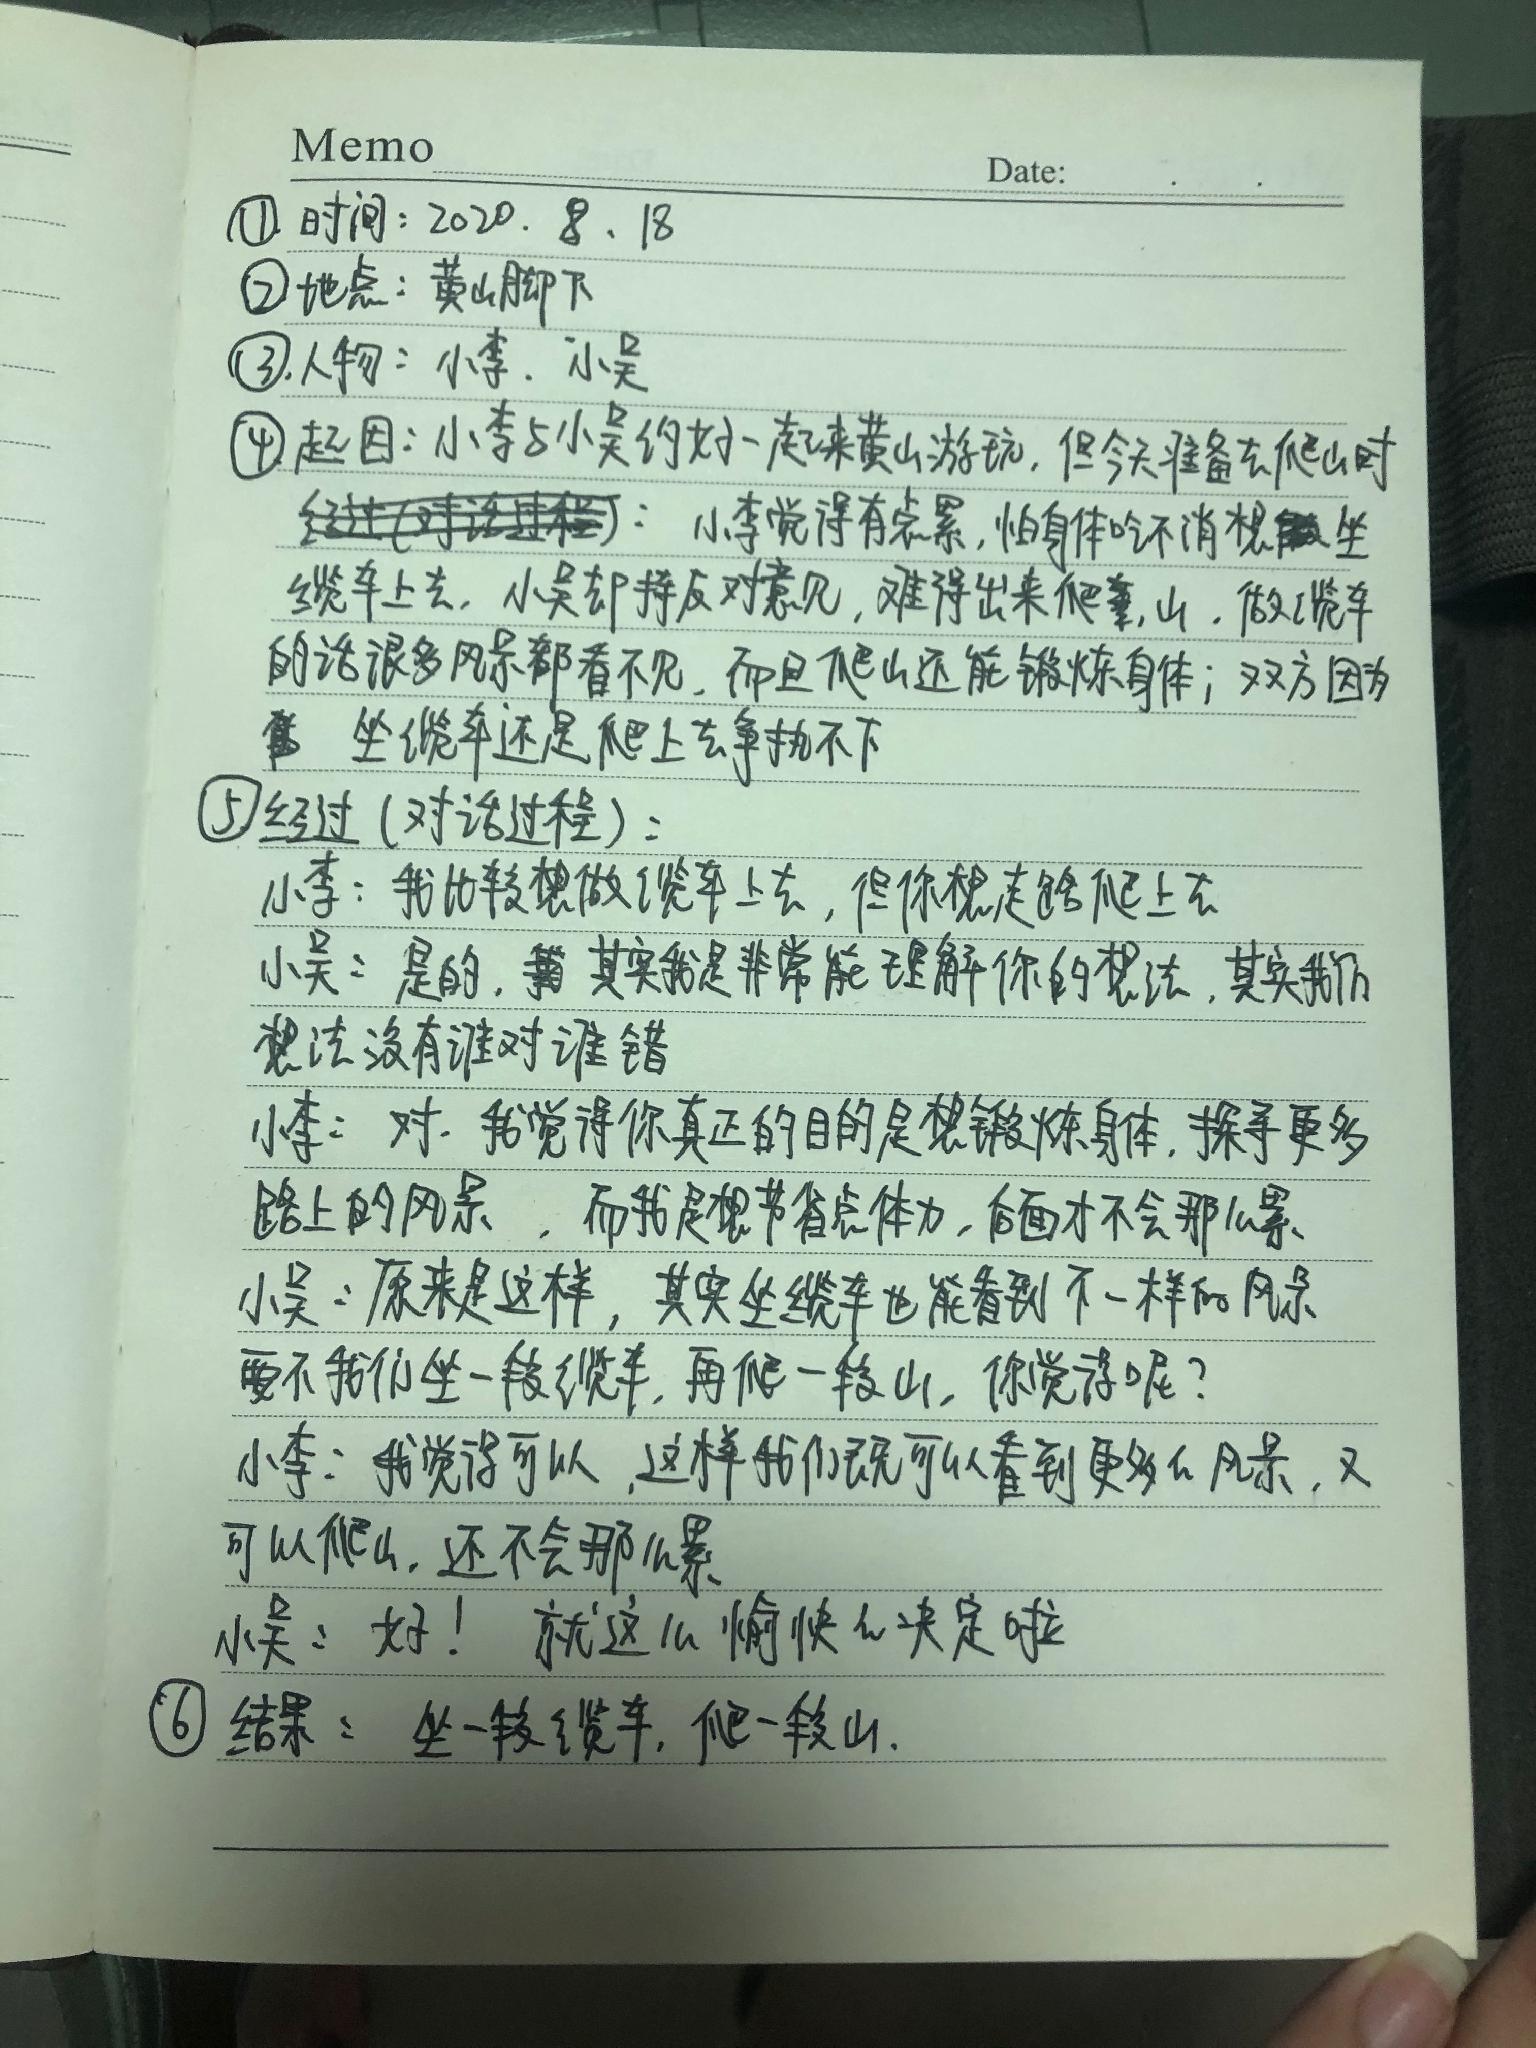 Memo
Date: . .
①时间：2020.8.18
②地点：黄山脚下
③人物：小李.小吴
④起因：小李与小吴约好一起来黄山游玩，但今天准备去爬山时
经过(对话过程)：小李觉得有点累，怕身体吃不消想坐
缆车上去，小吴却持反对意见，难得出来爬山，做缆车
的话很多风景都看不见，而且爬山还能锻炼身体；双方因为
坐缆车还是爬上去争执不下
⑤经过(对话过程)：
小李：我比较想做缆车上去，但你想走路爬上去
小吴：是的，其实我是非常能理解你的想法，其实我们
想法没有谁对谁错
小李：对.我觉得你真正的目的是想锻炼身体，探寻更多
路上的风景，而我是想节省点体力，后面才不会那么累
小吴：原来是这样，其实坐缆车也能看到不一样的风景
要不我们坐一段缆车，再爬一段山，你觉得呢？
小李：我觉得可以，这样我们既可以看到更多的风景，又
可以爬山，还不会那么累
小吴：好！就这么愉快的决定啦
⑥结果：坐一段缆车，爬一段山.